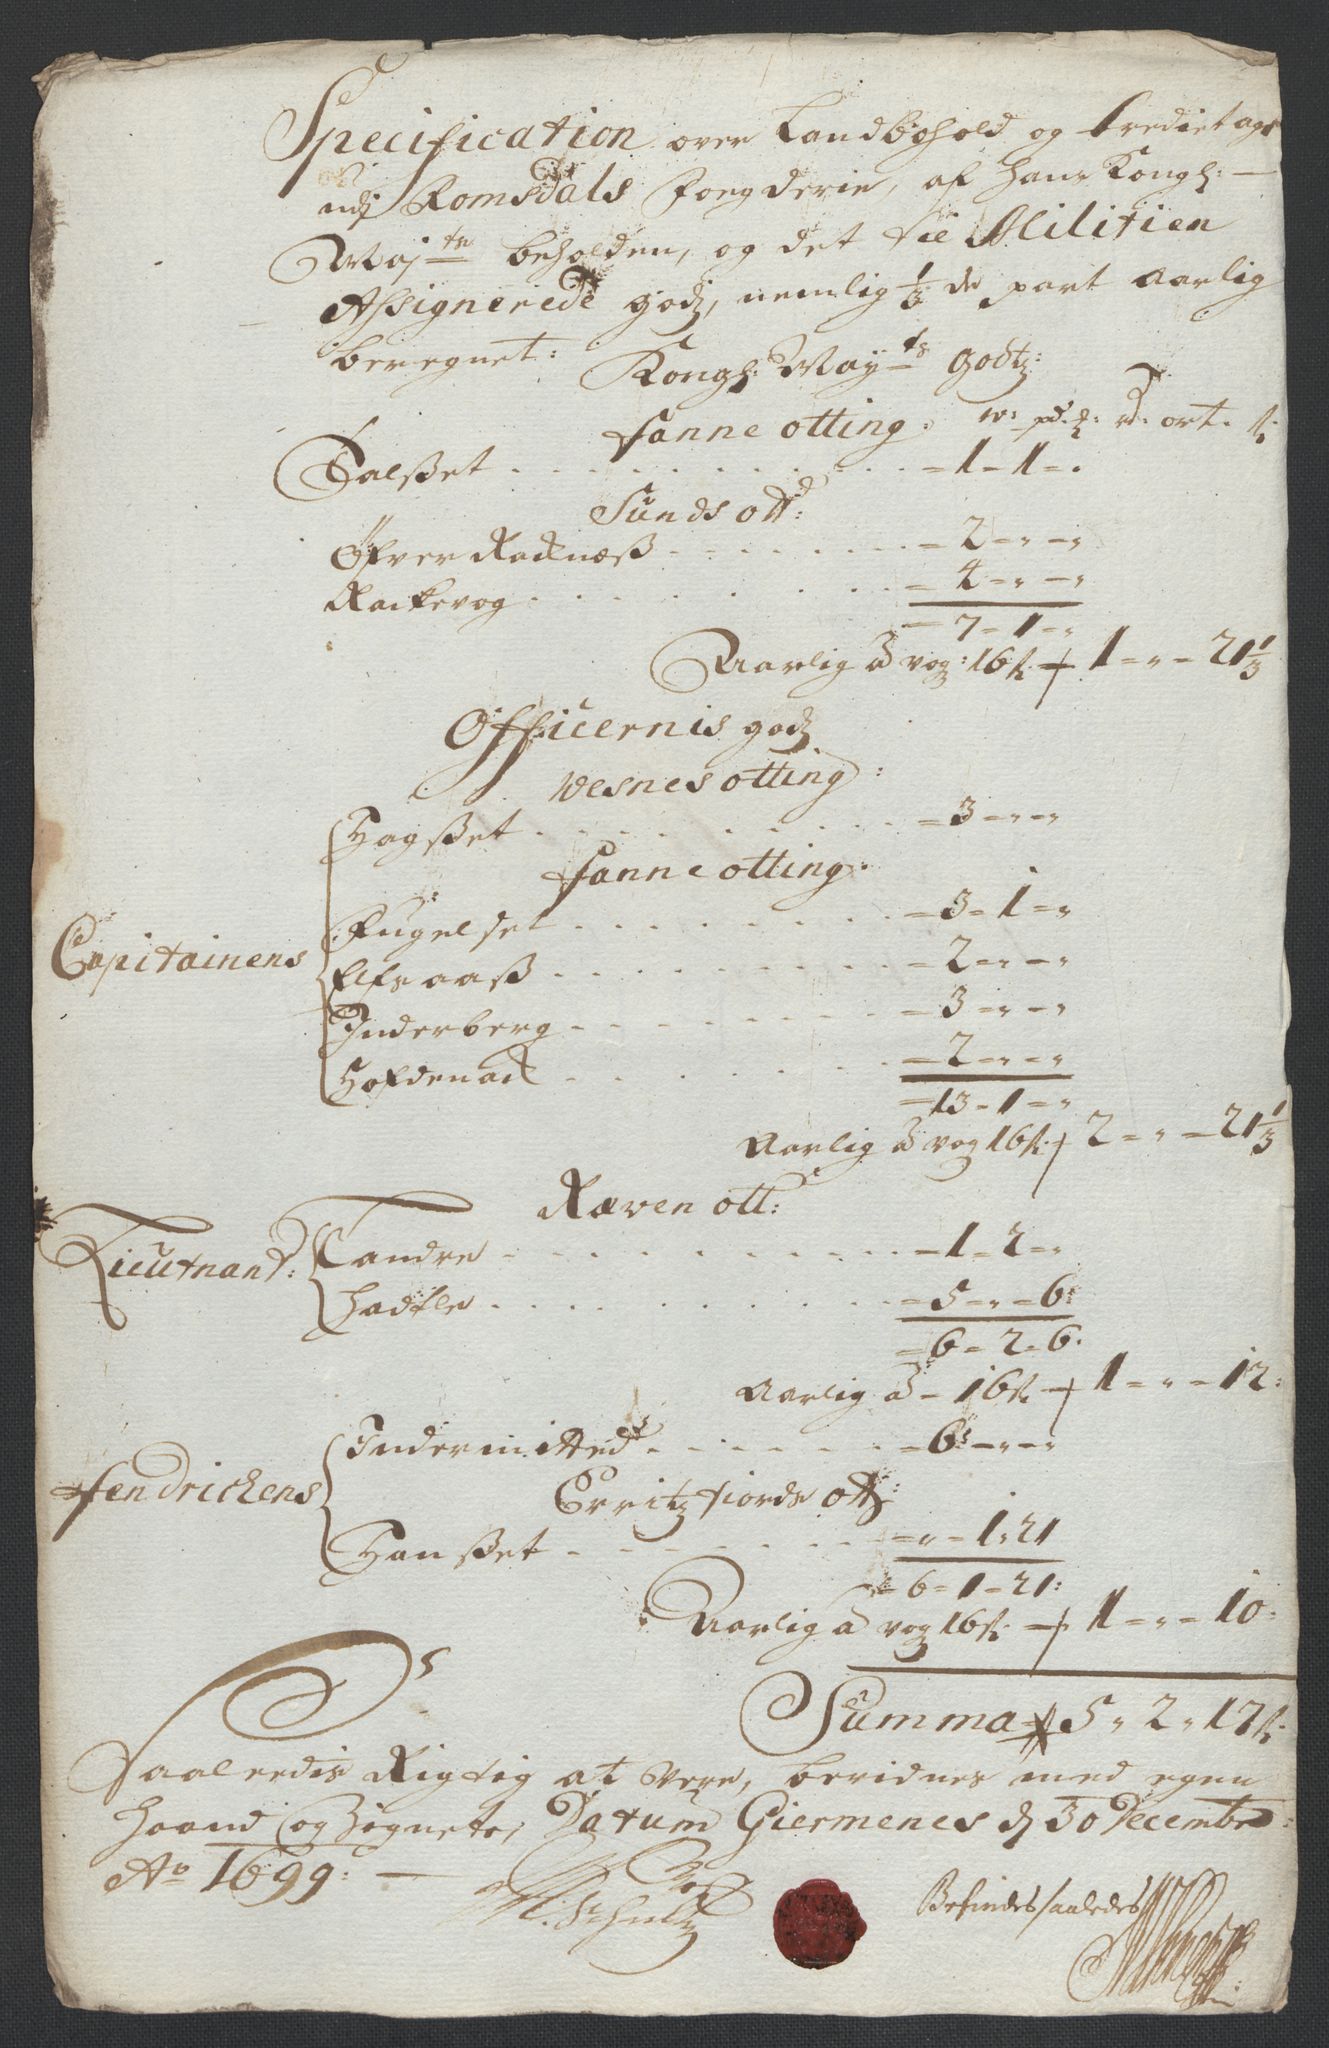 Specification over Landbohold og tredietage
udj Romsdals Foegderie, af Hans Kongl: —
Maj:ts beholden, og det til Militien
Assignerede godz, nemlig 1/3 de part Aarlig
beregnet:
Kongl: May:ts Godtz:
Fanne otting. w: pd: rd: ort. s:
Salsset . . . . . . . . . = 1 - 1 = „
Sunds ott:
Øfver Racknæss . . . . . . . = 2 = „ = „
Rackevog . . . . . . . = 4 = „ = „
= 7 - 1 = „
Aarlig à vog: 16 s: — 1 = „ = 21 1/3
Officernis godz
Vesnes otting:
Hagsset . . . . . . . = 3 = „ = „
Fanne otting.
Capitainens
Fugelset . . . . . . . = 3 - 1 = „
Elfsaass . . . . . . . = 2 = „ = „
Inderberg . . . . . . . = 3 = „ = „
Hofdenack . . . . . . . = 2 = „ = „
= 13 - 1 = „
Aarlig à vog 16 s: 2 = „ = 21 1/3
Ræven ott:
Lieutnant:
Tandre . . . . . . . = 1 - 2 = „
Hadtle . . . . . . . = 5 = „ = 6:
= 6 - 2 - 6:
Aarlig à - 16 s: — 1 = „ = 12:
Fendrichens
Indermitted . . . . . . = 6 = „ = „
Erritzfiords ott:
Hansset . . . . . . . = „ = 1 - 21
= 6 - 1 - 21:
Aarlig à vog 16 s: — 1 = „ = 10:
Summa 5 „ 2 „ 17 s:
Saaleedis Rigtig at vere, bevidnes med egen
haand og Zignete, Datum Giermenes d 30 Decembr:
Ao 1699: —
Schultz
Befindes saaledes